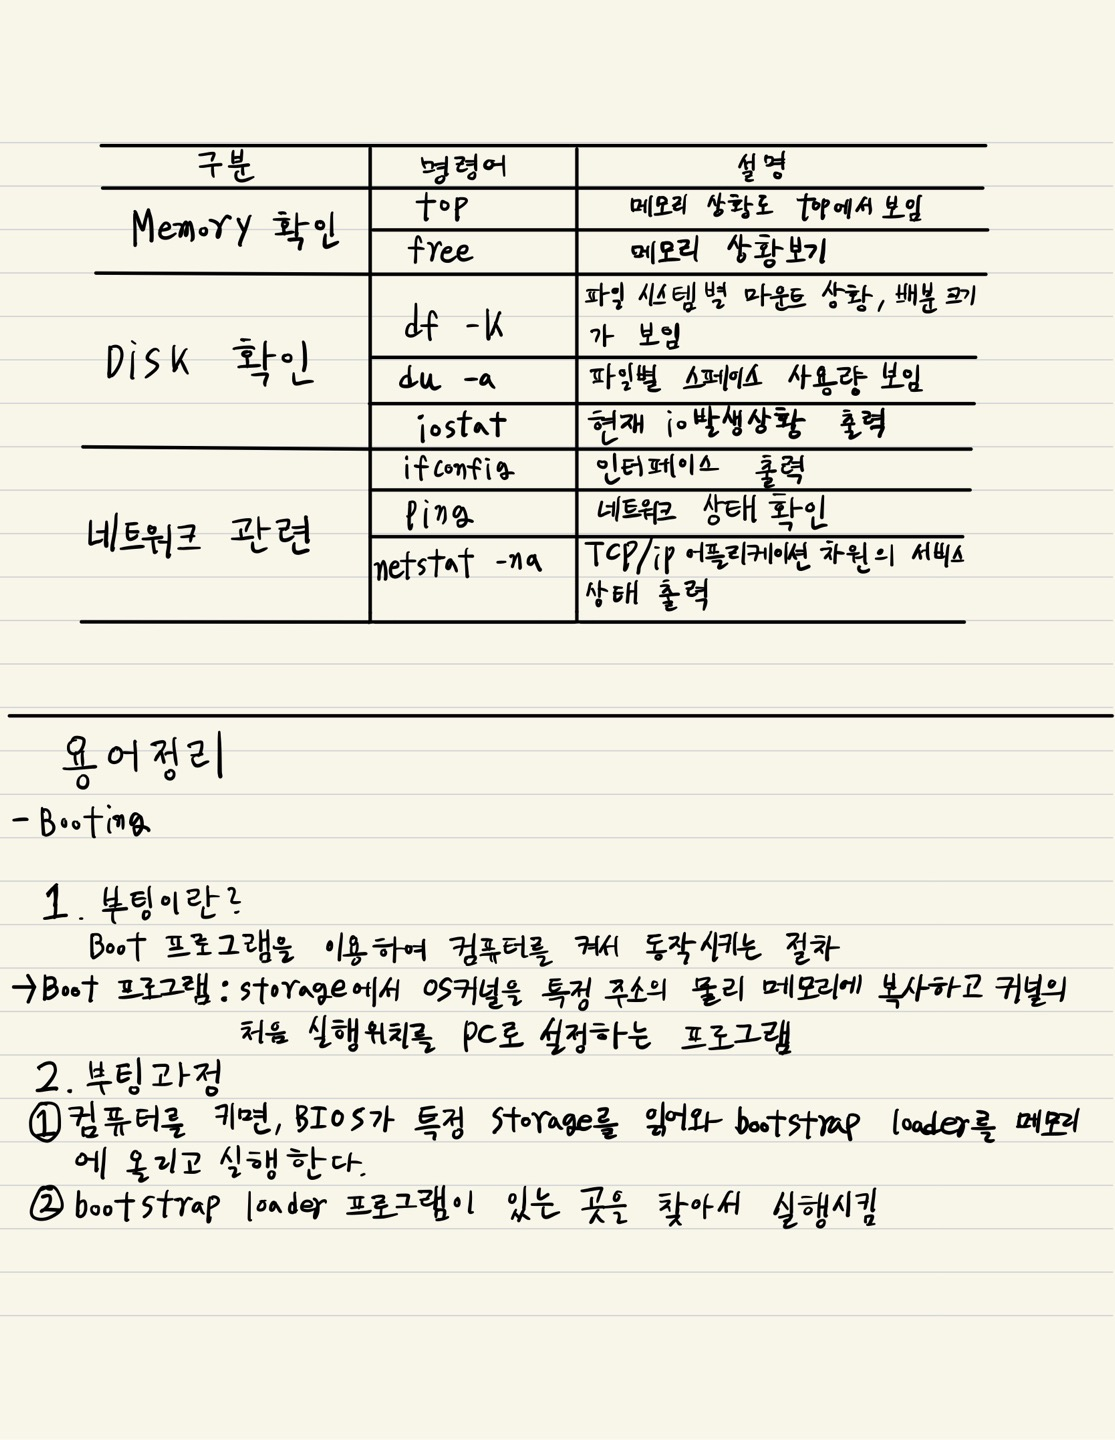 구분 명령어 설명
Memory 확인
top 메모리 상황도 top에서 보임
free 메모리 상황보기
Disk 확인
df -k 파일 시스템별 마운트 상황, 배분 크기
가 보임
du -a 파일별 스페이스 사용량 보임
iostat 현재 io발생상황 출력
네트워크 관련
ifconfig 인터페이스 출력
ping 네트워크 상태 확인
netstat -na TCP/ip 어플리케이션 차원의 서비스
상태 출력
용어정리
- Booting
1. 부팅이란?
Boot 프로그램을 이용하여 컴퓨터를 켜서 동작시키는 절차
→ Boot 프로그램 : storage에서 OS커널을 특정 주소의 물리 메모리에 복사하고 커널의
처음 실행위치를 PC로 설정하는 프로그램
2. 부팅과정
① 컴퓨터를 키면, BIOS가 특정 storage를 읽어와 bootstrap loader를 메모리
에 올리고 실행한다.
② bootstrap loader 프로그램이 있는 곳을 찾아서 실행시킴